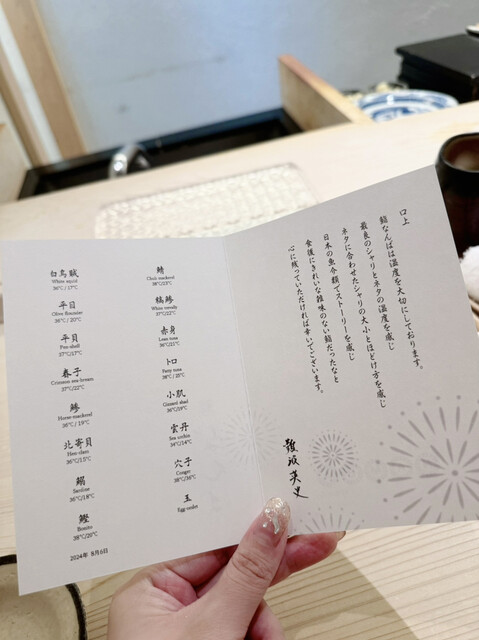 白烏賊
White squid
36℃ / 17℃
平目
Olive flounder
36℃ / 20℃
平貝
Pen-shell
37℃/17℃
春子
Crimson sea-bream
37℃/22℃
鯵
Horse-mackerel
36℃ / 19℃
北寄貝
Hen-clam
36℃/15℃
鰯
Sardine
36℃/18℃
鰹
Bonito
38℃/20℃
2024年 8月6日
鯖
Chub mackerel
38℃/23℃
縞鯵
White trevally
37℃/22℃
赤身
Lean tuna
36℃/21℃
トロ
Fatty tuna
38℃ / 25℃
小肌
Gizzard shad
36℃/19℃
雲丹
Sea urchin
34℃/14℃
穴子
Conger
38℃/36℃
玉
Egg-omlet
口上
鮨なんばは温度を大切にしております。
最良のシャリとネタの温度を感じ
ネタに合わせたシャリの大小とほどけ方を感じ
日本の魚介類でストーリーを感じ
食後にきれいな雑味のない鮨だったなと
心に残っていただければ幸いでございます。
難波英史